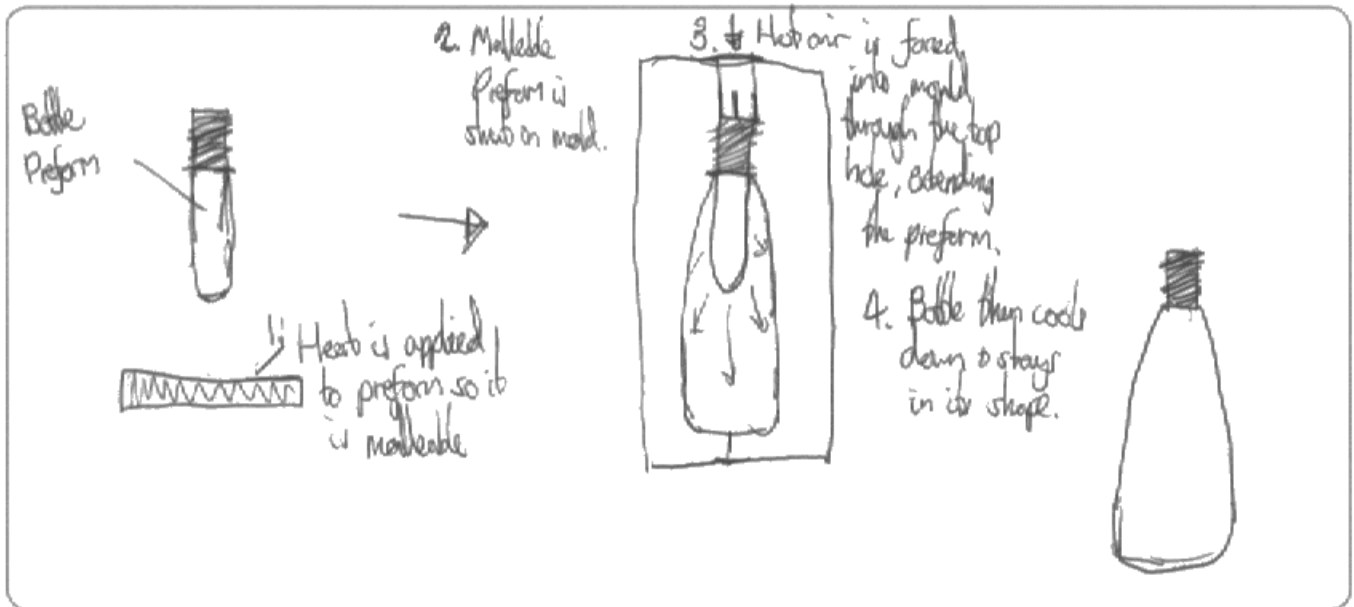 Bottle
Preform
1. Heat is applied
to preform so it
is malleable
2. Malleable
Preform is
shut in mold.
3. Hot air is forced
into mould
through the top
hole, extending
the preform.
4. Bottle then cools
down & stays
in its shape.